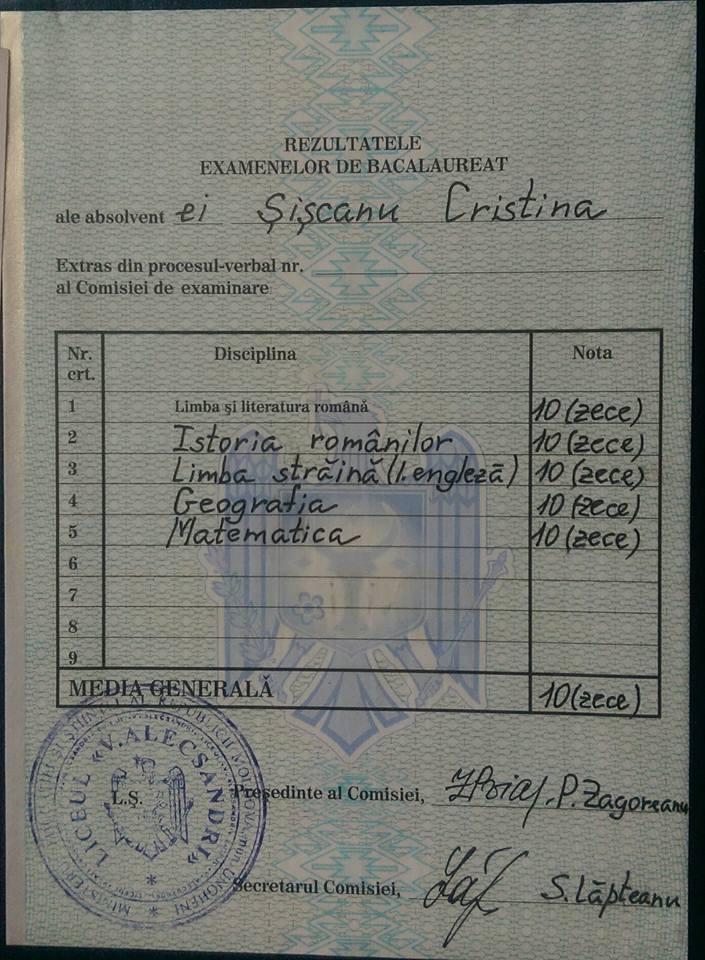 REZULTATELE
EXAMENELOR DE BACALAUREAT
ale absolvent ei Șișcanu Cristina
Extras din procesul-verbal nr.
al Comisiei de examinare
Nr. crt. Disciplina Nota
1 Limba și literatura română 10 (zece)
2 Istoria românilor 10 (zece)
3 Limba străină (l. engleză) 10 (zece)
4 Geografia 10 (zece)
5 Matematica 10 (zece)
6
7
8
9
MEDIA GENERALĂ 10 (zece)
LICEUL «V. ALECSANDRI»
L.Ș.
Președinte al Comisiei, P. Zagoreanu
Secretarul Comisiei, S. Lăpteanu